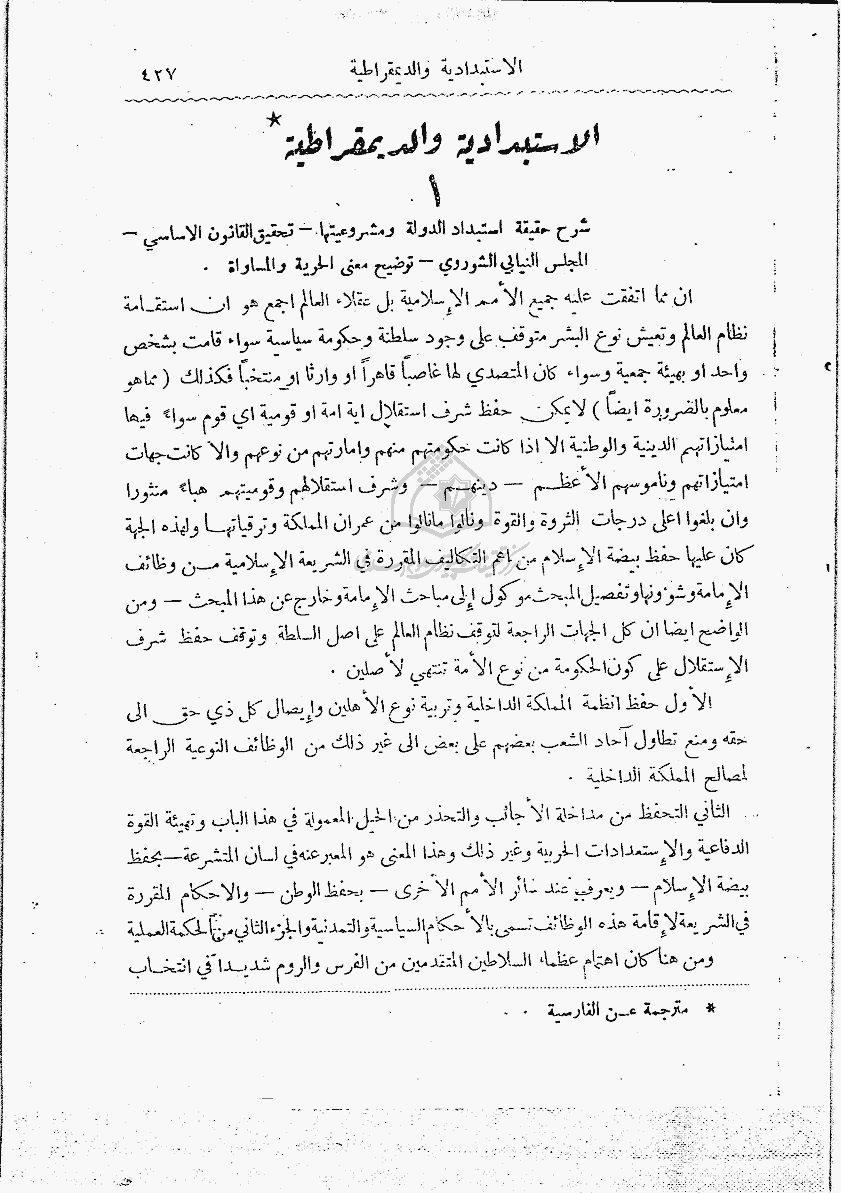 الاستبدادية والديمقراطية ٤٢٧
الاستبدادية والديمقراطية *
١
شرح حقيقة استبداد الدولة ومشروعيتها. – تحقيق القانون الاساسي –
المجلس النيابي الشوروي – توضيح معنى الحرية والمساواة .
ان مما اتفقت عليه جميع الأمم الإسلامية بل عقلاء العالم اجمع هو ان استقامة
نظام العالم وتعيش نوع البشر متوقف على وجود سلطنة وحكومة سياسية سواء قامت بشخص
واحد او بهيئة جمعية وسواء كان المتصدي لها غاصباً قاهراً او وارثا او منتخباً فكذلك ( مماهو
معلوم بالضرورة ايضاً ) لايمكن حفظ شرف استقلال اية امة او قومية اي قوم سواء فيها
امتيازاتهم الدينية والوطنية الا اذا كانت حكومتهم منهم وامارتهم من نوعهم والا كانت جهات
امتيازاتهم وناموسهم الأعظم – دينهم – وشرف استقلالهم وقوميتهم هباء منثورا
وان بلغوا اعلى درجات الثروة والقوة ونالوا مانالوا من عمران المملكة وترقياتها ولهذه الجهة
كان عليها حفظ بيضة الإسلام من اهم التكاليف المقررة في الشريعة الإسلامية من وظائف
الإمامة وشؤونها وتفصيل المبحث موكول إلى مباحث الإمامة وخارج عن هذا المبحث – ومن
الواضح ايضا ان كل الجهات الراجعة لتوقف نظام العالم على اصل السلطة وتوقف حفظ شرف
الإستقلال على كون الحكومة من نوع الأمة تنتهي لأصلين .
الأول حفظ انظمة المملكة الداخلية وتربية نوع الأهلين وإيصال كل ذي حق الى
حقه ومنع تطاول آحاد الشعب بعضهم على بعض الى غير ذلك من الوظائف النوعية الراجعة
لمصالح المملكة الداخلية .
الثاني التحفظ من مداخلة الأجانب والتحذر من الحيل المعمولة في هذا الباب وتهيئة القوة
الدفاعية والإستعدادات الحربية وغير ذلك وهذا المعنى هو المعبر عنه في لسان المتشرعة – بحفظ
بيضة الإسلام – ويعرف عند سائر الأمم الأخرى – بحفظ الوطن – والاحكام المقررة
في الشريعة لإقامة هذه الوظائف تسمى بالأحكام السياسية والتمدنية والجزء الثاني من الحكمة العملية
ومن هنا كان اهتمام عظماء السلاطين المتقدمين من الفرس والروم شديدا في انتخاب
* مترجمة عن الفارسية . .